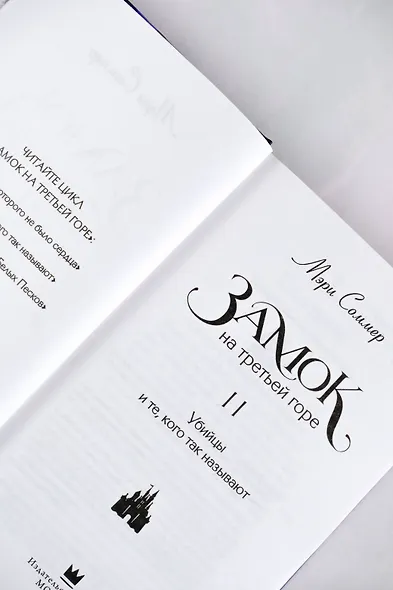 ЧИТАЙТЕ ЦИКЛ
АМОК НА ТРЕТЬЕЙ ГОРЕ»:
которого не было сердца»
го так называют»
Белых Песков»
Мэри Соммер
ЗАМОК
на третьей горе
II
Убийцы
и те, кого так называют
Издательс
МО